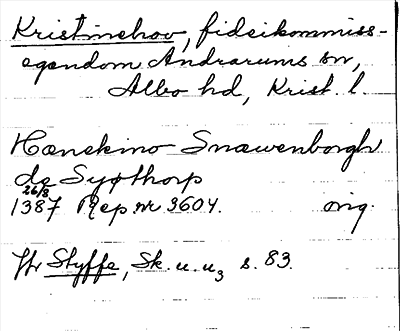 Kristinehov, fideikommiss-
egendom Andrarums sn,
Albo hd, Krist. l.
Hænekino Snawenborgh
de Syøthorp
26/8
1387 Rep nr 3604. orig.
Hr Styffe, Sk. u. u3 s. 83.